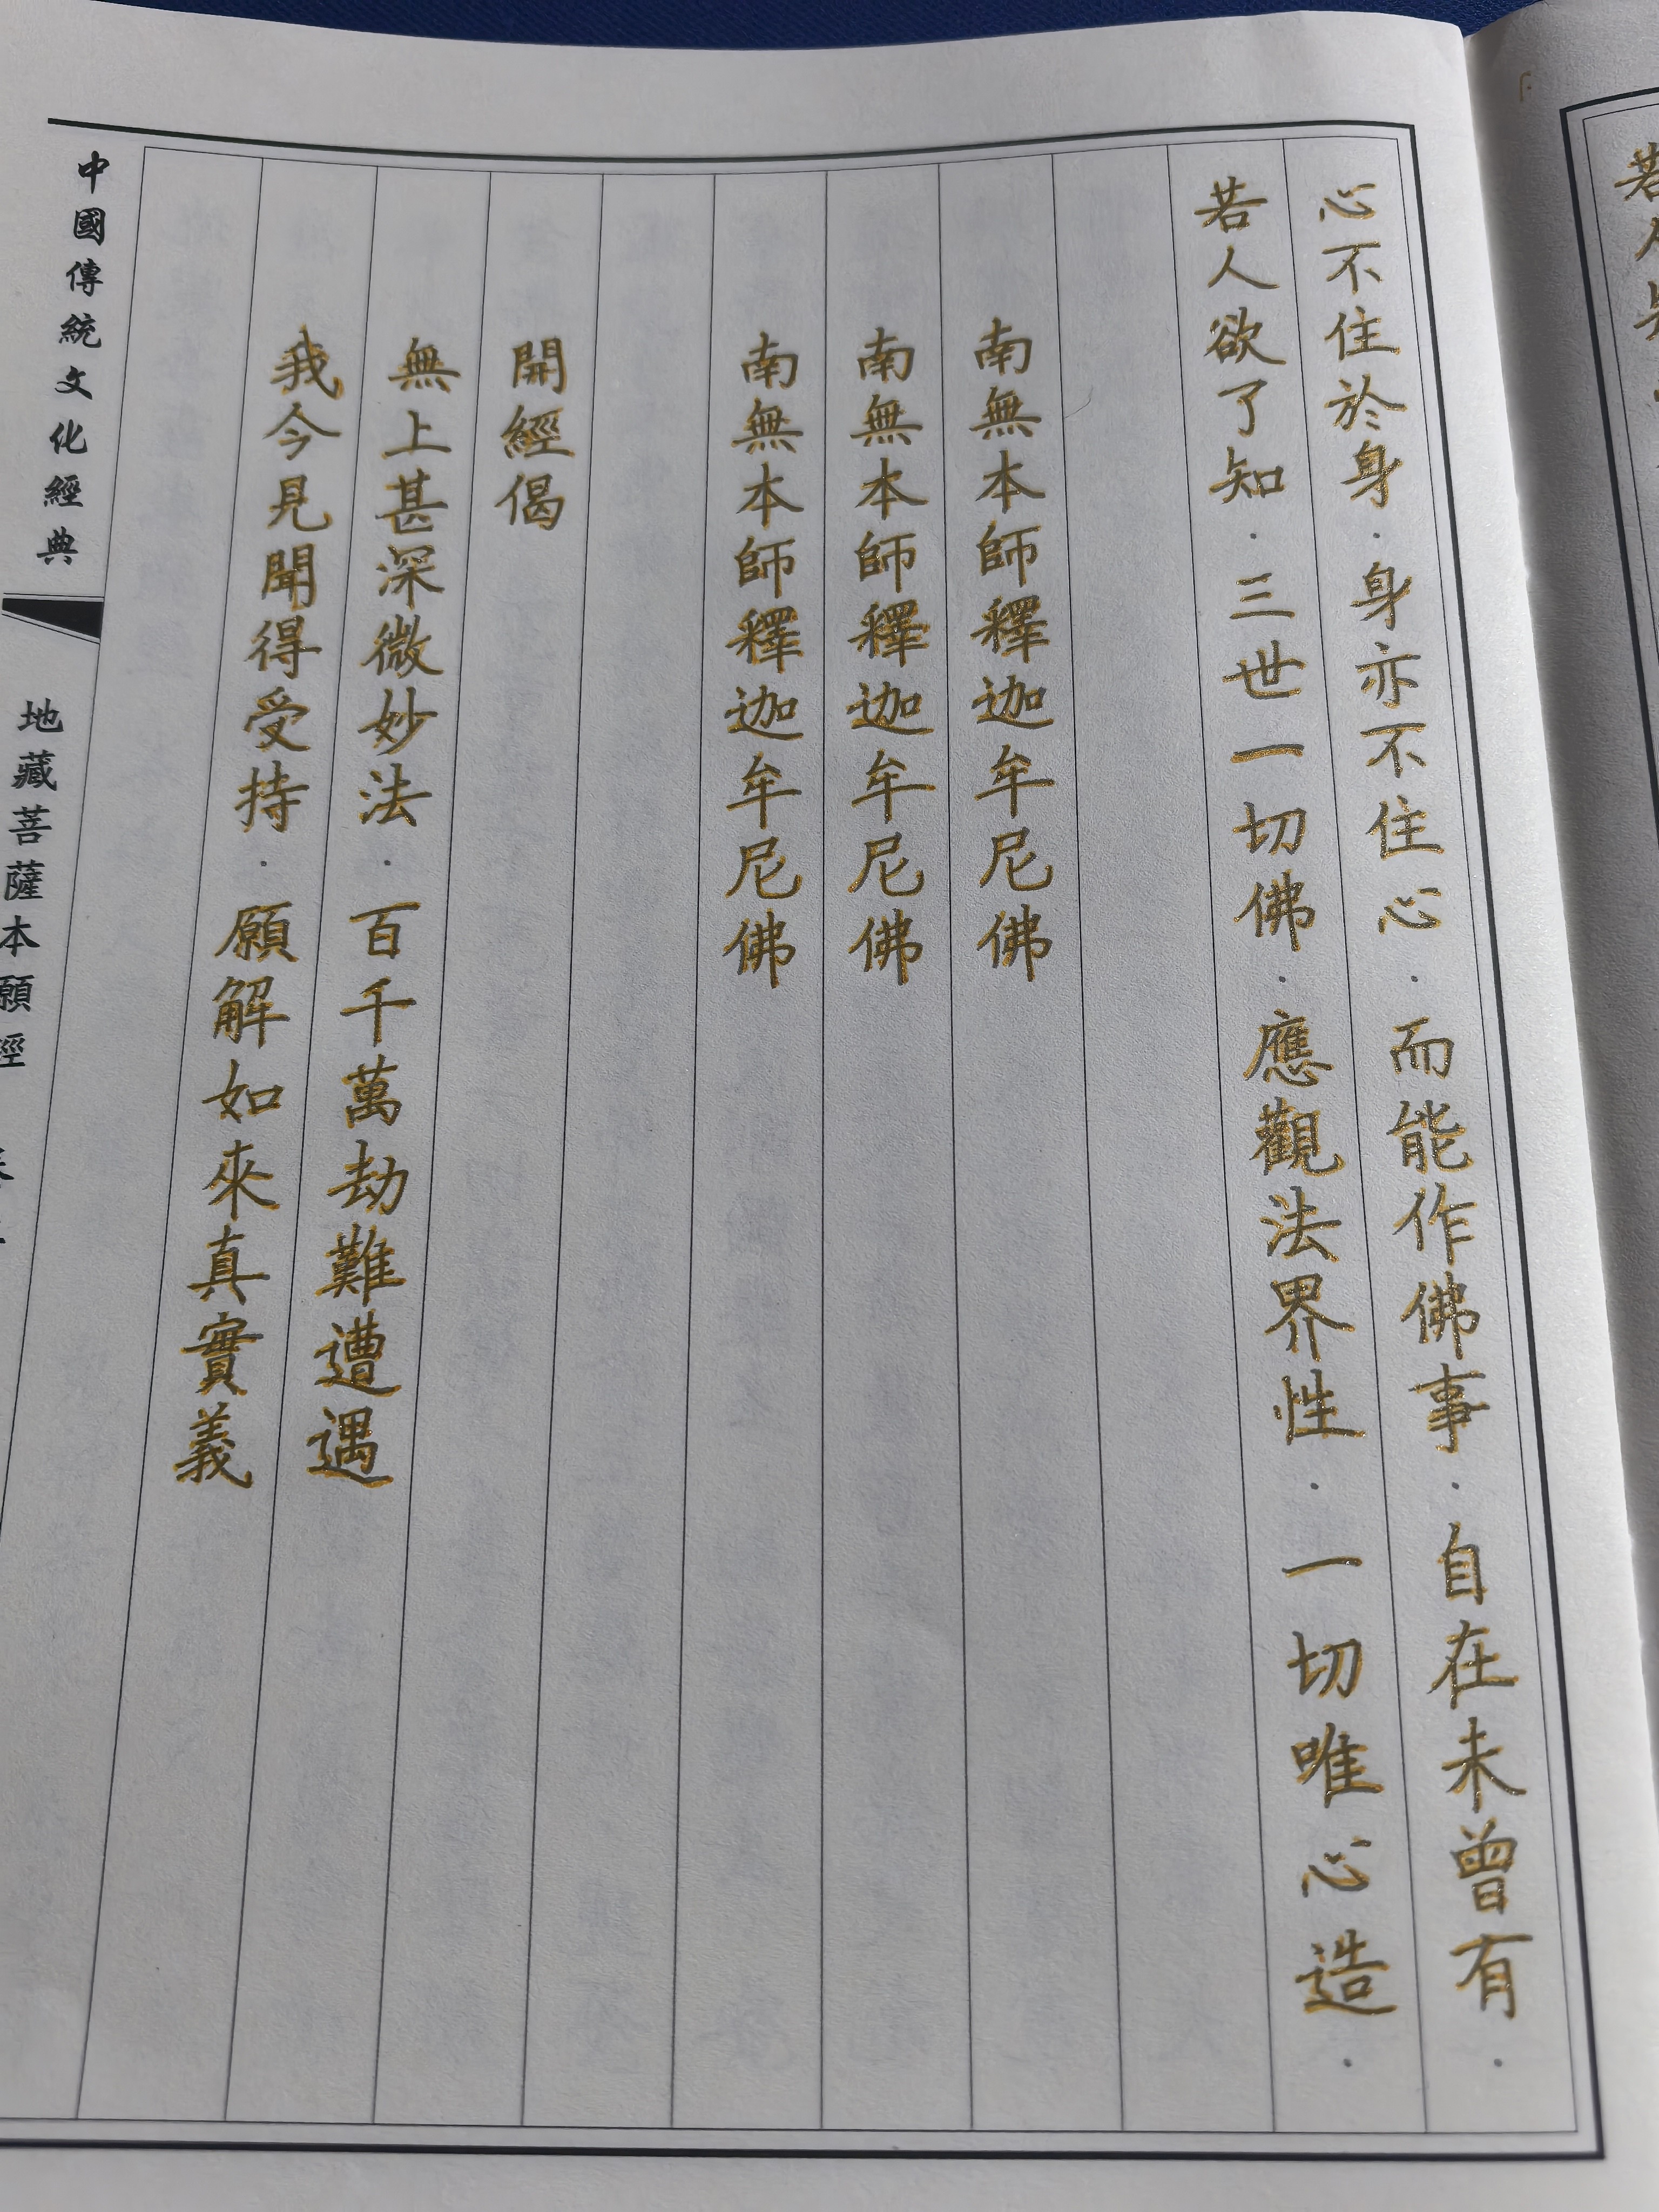 心不住於身．身亦不住心．而能作佛事．自在未曾有．
若人欲了知．三世一切佛．應觀法界性．一切唯心造．
南無本師釋迦牟尼佛
南無本師釋迦牟尼佛
南無本師釋迦牟尼佛
開經偈
無上甚深微妙法．百千萬劫難遭遇
我今見聞得受持．願解如來真實義
中國傳統文化經典
地藏菩薩本願經